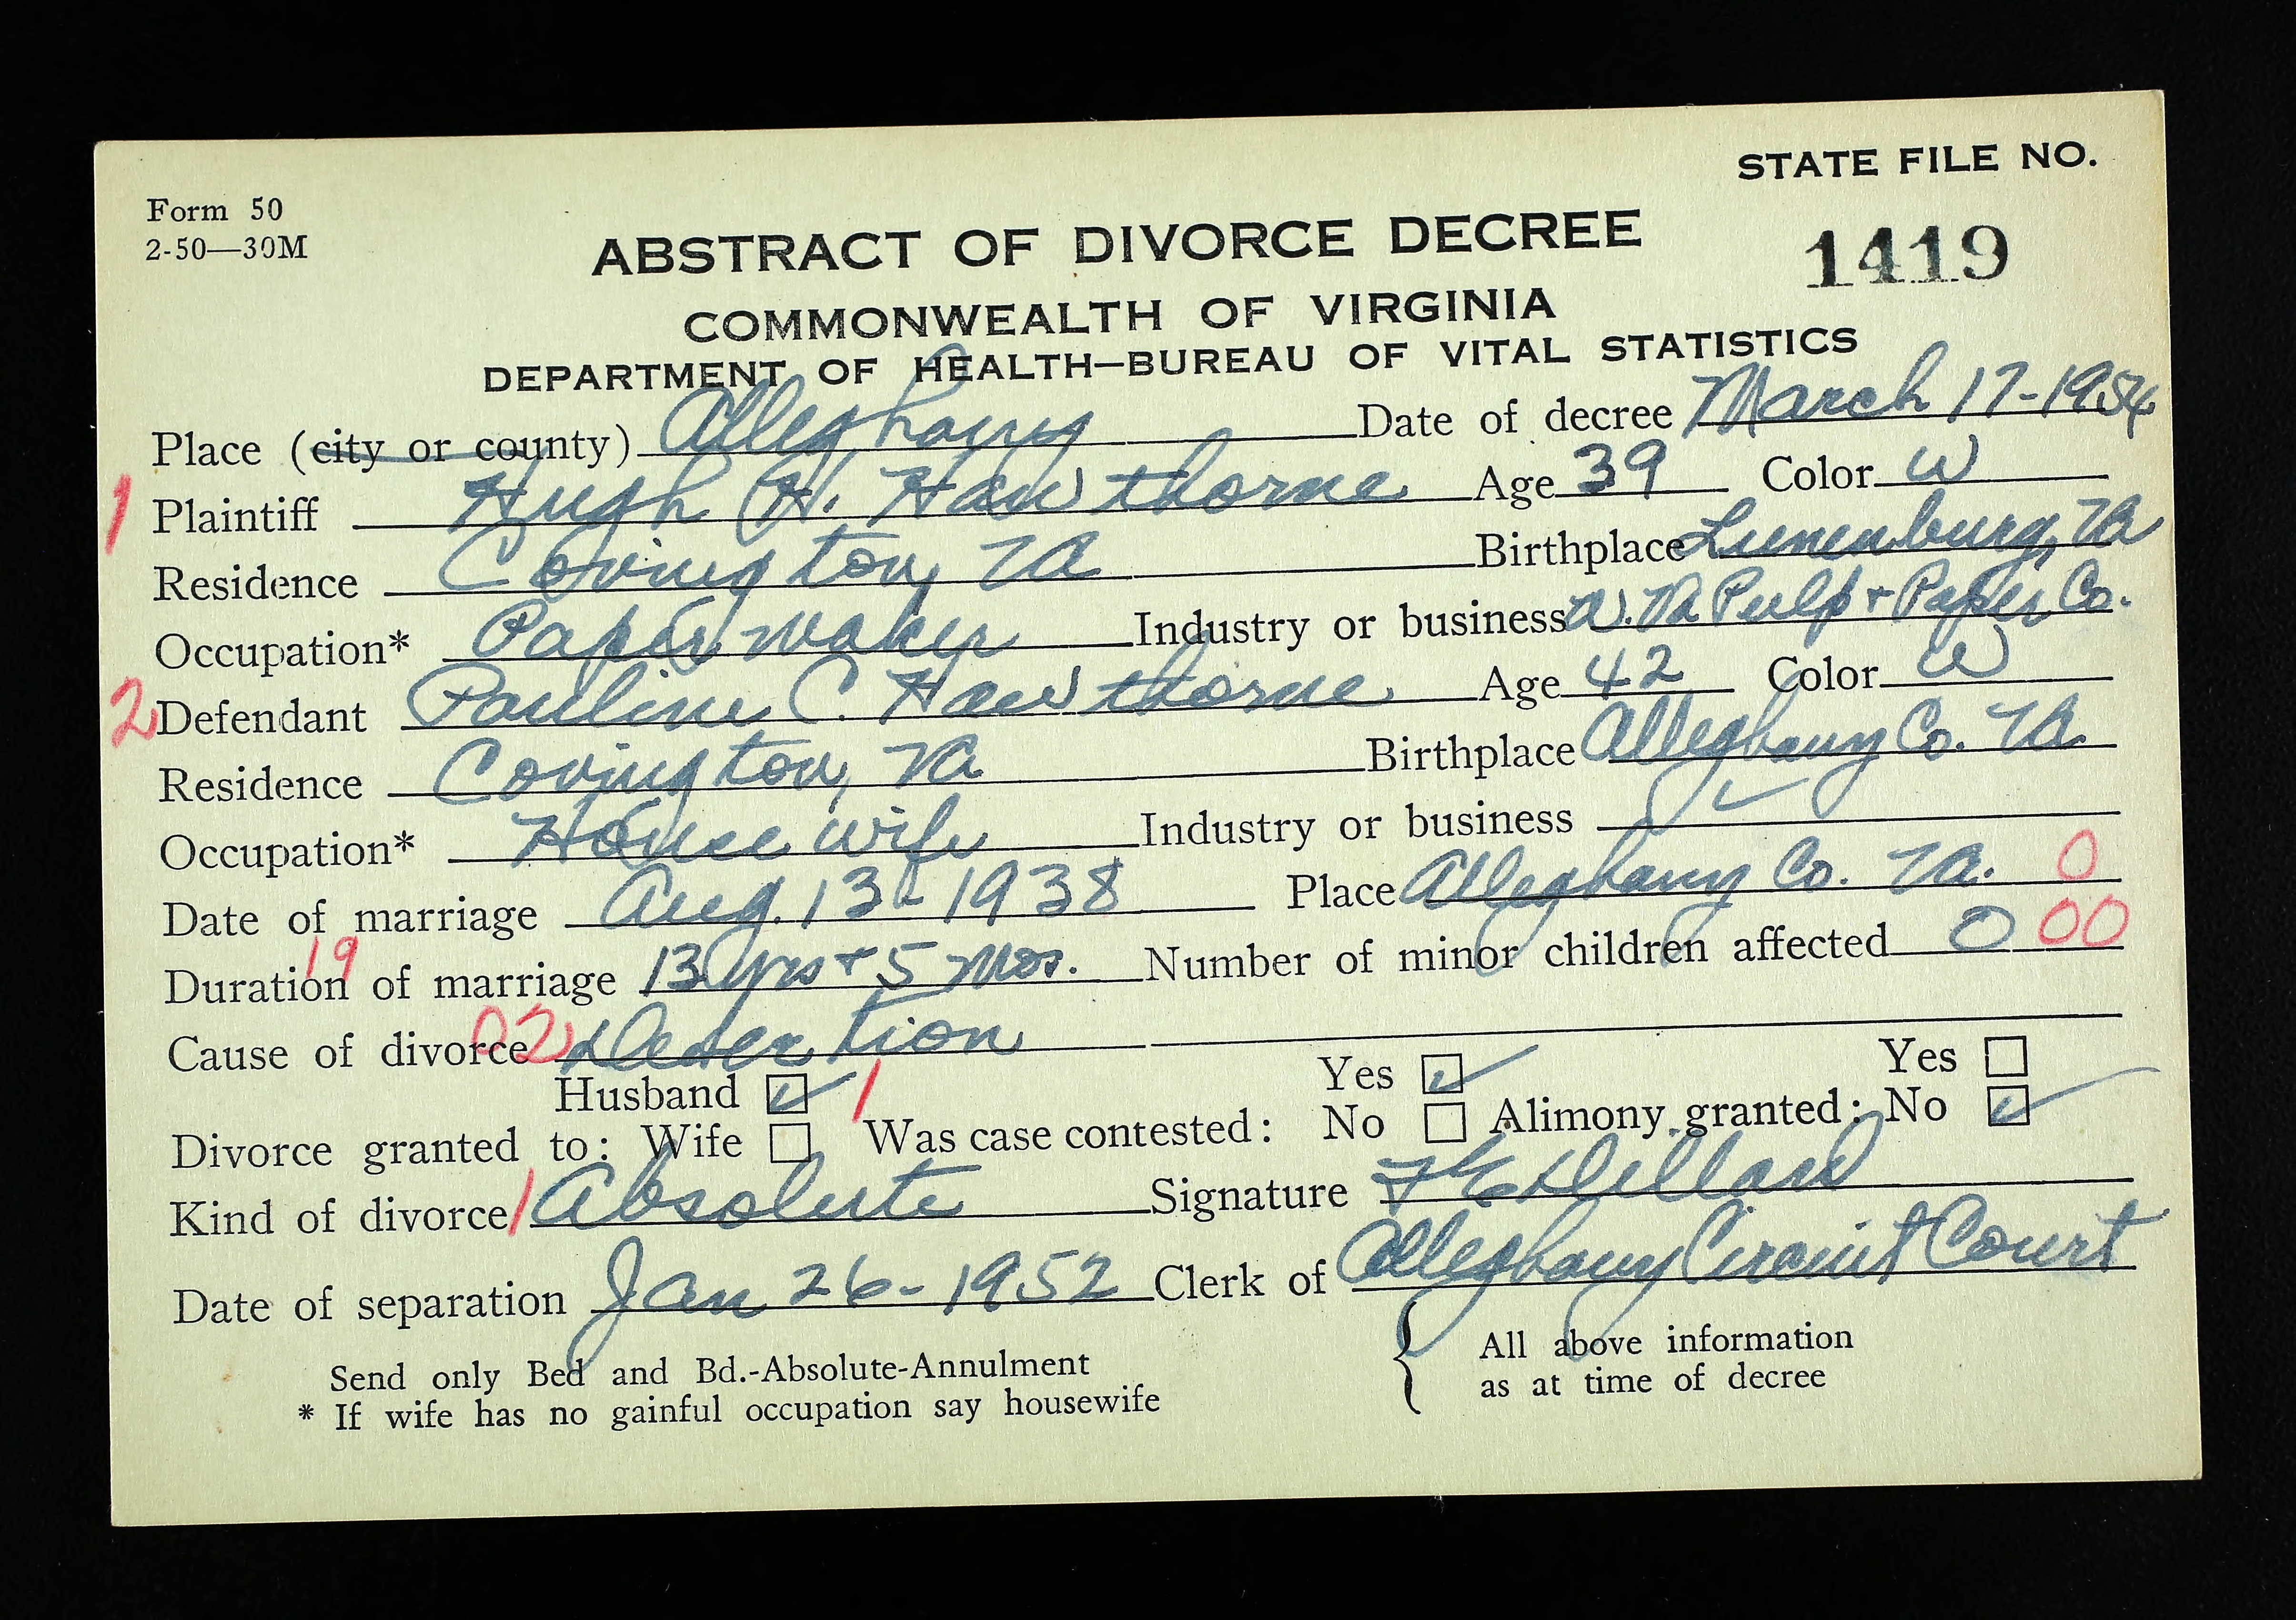 STATE FILE NO.
Form 50
2-50—30M
1419
ABSTRACT OF DIVORCE DECREE
COMMONWEALTH OF VIRGINIA
DEPARTMENT OF HEALTH—BUREAU OF VITAL STATISTICS
Place (city or county) Alleghany Date of decree March 17-1954
1 Plaintiff Hugh H. Hawthorne Age 39 Color W
Residence Covington, Va Birthplace Lunenburg, Va
Occupation* Paper maker Industry or business W. Va Pulp + Paper Co.
2 Defendant Pauline C. Hawthorne Age 42 Color W
Residence Covington, Va Birthplace Alleghany Co. Va
Occupation* House wife Industry or business ✓
Date of marriage Aug. 13-1938 Place Alleghany Co. Va. 0
19
Duration of marriage 13 yrs + 5 Mos. Number of minor children affected 0 00
Cause of divorce 02 Desertion
Husband ☑ 1 Yes ☑ Yes ☐
Divorce granted to: Wife ☐ Was case contested: No ☐ Alimony granted: No ☑
Kind of divorce 1 Absolute Signature Dillard
Date of separation Jan 26-1952 Clerk of Alleghany Circuit Court
Send only Bed and Bd.-Absolute-Annulment
* If wife has no gainful occupation say housewife
{ All above information
as at time of decree